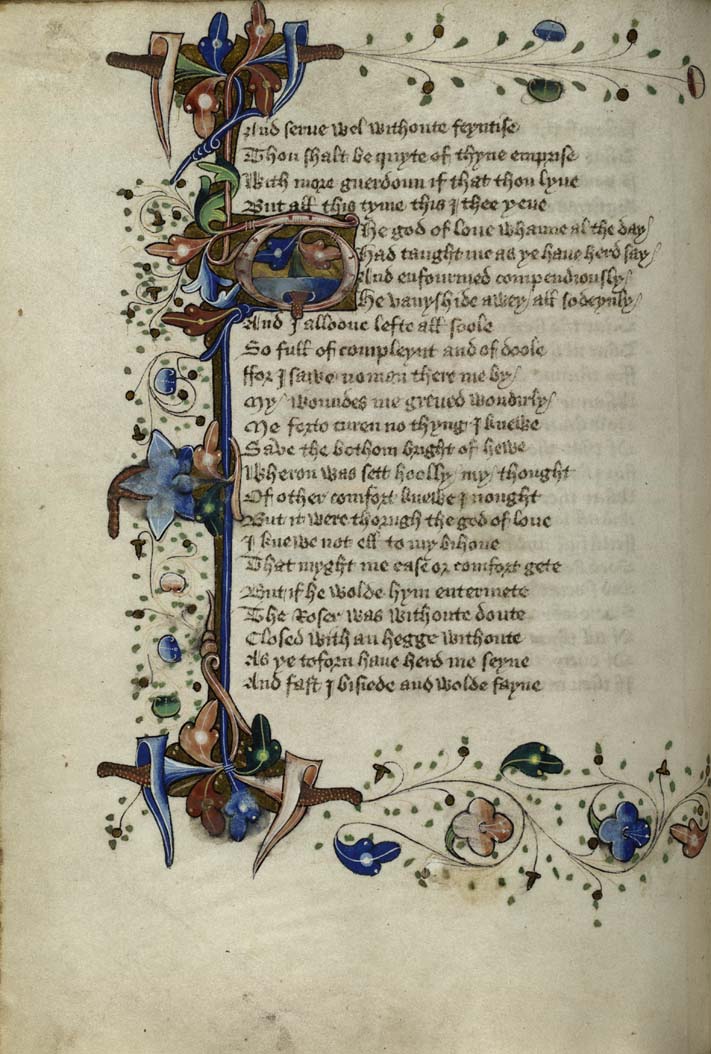 And serue wel withoute feyntise
Thou shalt be quyte of thyne emprise
With more guerdoun if that thou lyue
But all this tyme this I thee yeue
The god of loue whanne al the day
Had taught me as ye haue herd say
And enfourmed compendiously
He vanyshide awey all sodeynly
And I alloone lefte all soole
So full of compleynt and of doole
ffor I sawe no man there me by
My woundes me greued wondirly
Me forto curen no thyng I knewe
Saue the bothom bright of hewe
Wheron was sett hoolly my thought
Of other comfort knewe I nought
But it were thorugh the god of loue
I knewe not ell to my bihoue
That myght me ease or comfort gete
But if he wolde hym entermete
The Roser was withoute doute
Closed with an hegge withoute
As ye toforn haue herd me seyne
And fast I bisiede and wolde fayne